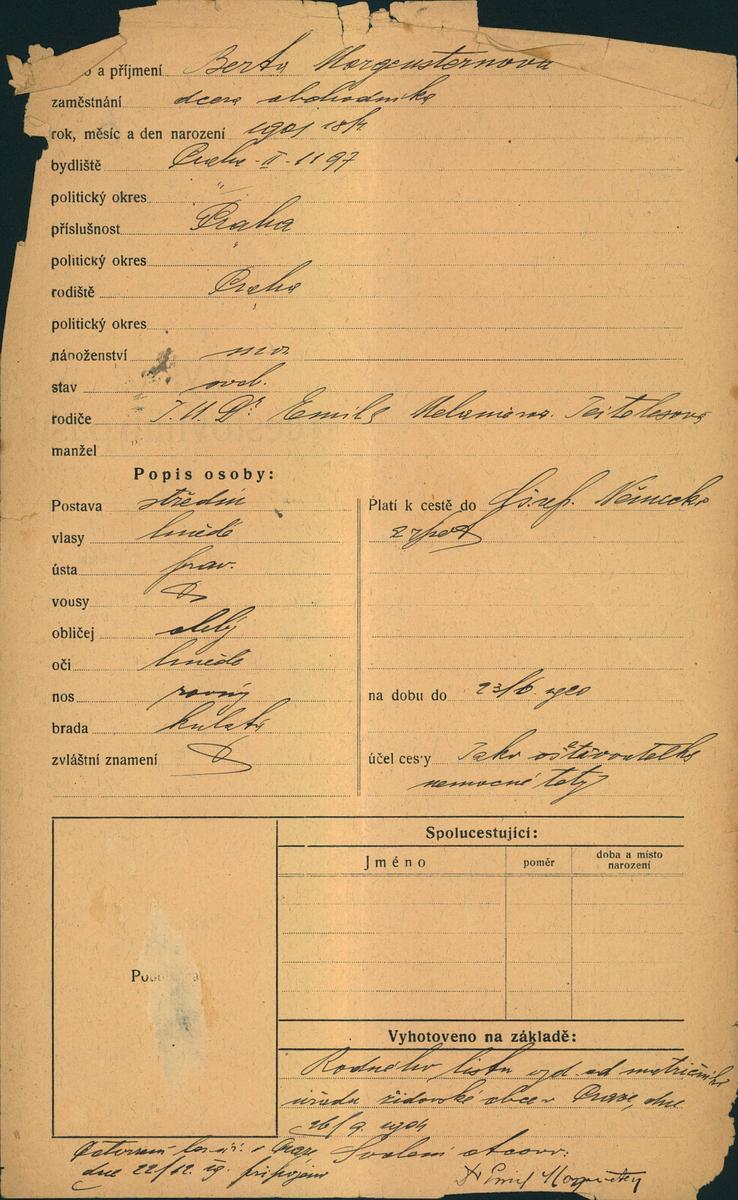 o a příjmení Berta Morgensternova
zaměstnání dcera obchodníka
rok, měsíc a den narození 18/
bydliště Praha - II - 1197
politický okres "
příslušnost Praha
politický okres "
rodiště Praha
politický okres "
náboženství moz.
stav svob.
rodiče J. U. Dr. Emil a roz. Teitelesova
manžel
Popis osoby:
Postava střední
vlasy hnědé
ústa prav.
vousy
obličej
oči hnědé
nos rovný
brada kulatá
zvláštní znamení
Platí k cestě do Německa
a zpět
na dobu do 23/6. 1920
účel cesty Jako ošetřovatelka
nemocné tety
Spolucestující:
Jméno
poměr
doba a místo
narození
Podobizna
Vyhotoveno na základě:
Rodného listu vyd. od matričního
úřadu židovské obce v Praze, dne
26/9. 1904
Svolení otcovo:
dne 22/12. 19. připojeno
Dr Emil